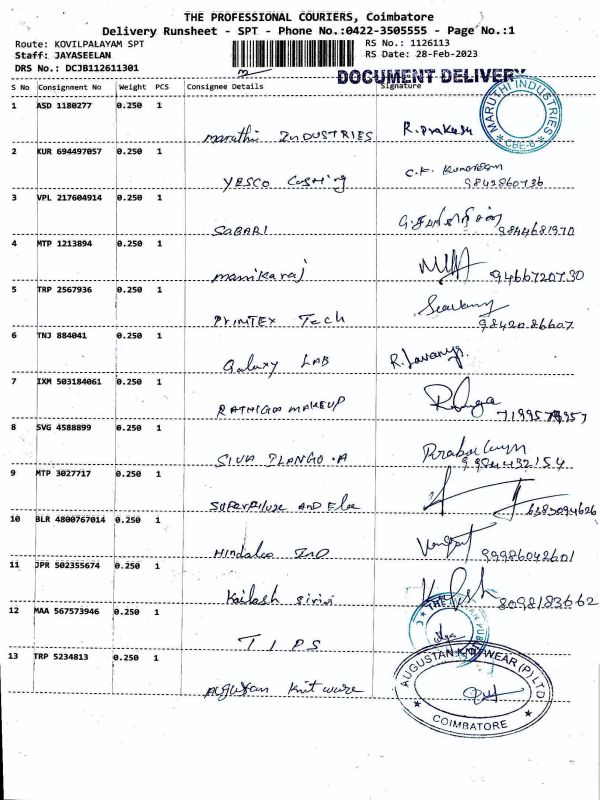 THE PROFESSIONAL COURIERS, Coimbatore
Delivery Runsheet - SPT - Phone No.:0422-3505555 - Page No.:1
Route: KOVILPALAYAM SPT
RS No.: 1126113
Staff: JAYASEELAN
RS Date: 28-Feb-2023
DRS No.: DCJB112611301
DOCUMENT DELIVERY
S No Consignment No Weight PCS Consignee Details Signature
1 ASD 1180277 0.250 1
Maruthi INDUSTRIES R. Prakash
MARUTHI INDUSTRIES CBE-6
2 KUR 694497057 0.250 1
YESCO Casting 9842860736
3 VPL 217604914 0.250 1
SABARI 9844681970
4 MTP 1213894 0.250 1
manikaraj 9466720730
5 TRP 2567936 0.250 1
PRIMTEX Tech 9842086607
6 TNJ 884041 0.250 1
Galaxy LAB R. Lavanya
7 IXM 503184061 0.250 1
RATHIGA MAKEUP
8 SVG 4588899 0.250 1
SIVA
9 MTP 3027717 0.250 1
AND 6383094626
10 BLR 4800767014 0.250 1
Hindalco IND 99986042601
11 JPR 502355674 0.250 1
Kailash 8098183662
12 MAA 567573946 0.250 1
TIPS
THE
13 TRP 5234813 0.250 1
Augustan Knit ware
AUGUSTAN KNITWEAR (P) LTD
COIMBATORE